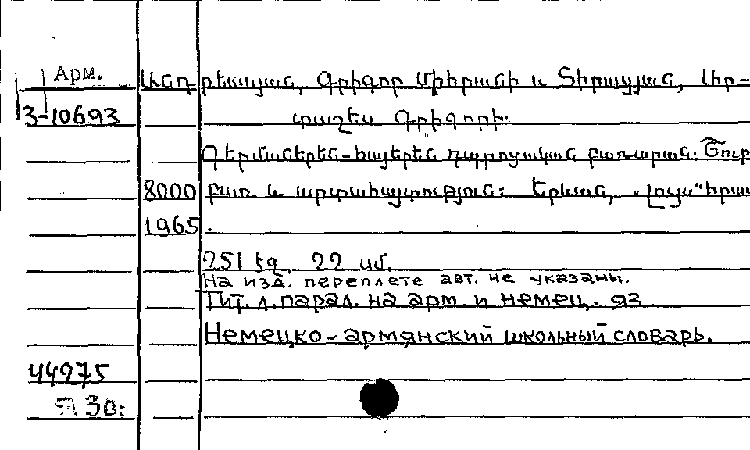 Арм. Անդրեասյան, Գրիգոր Միհրանի և Տիրացյան, Լիր-
3-10693 տաշես Գրիգորի:
Գերմաներեն-հայերեն դպրոցական բառարան: Շուրջ
8000 բառ և արտահայտություն: Երևան, „Լույս" հրատ
1965.
251 էջ. 22 սմ.
На изд. переплете авт. не указаны.
Тит. л. парал. на арм. и немец. яз
Немецко-армянский школьный словарь.
44275
30: